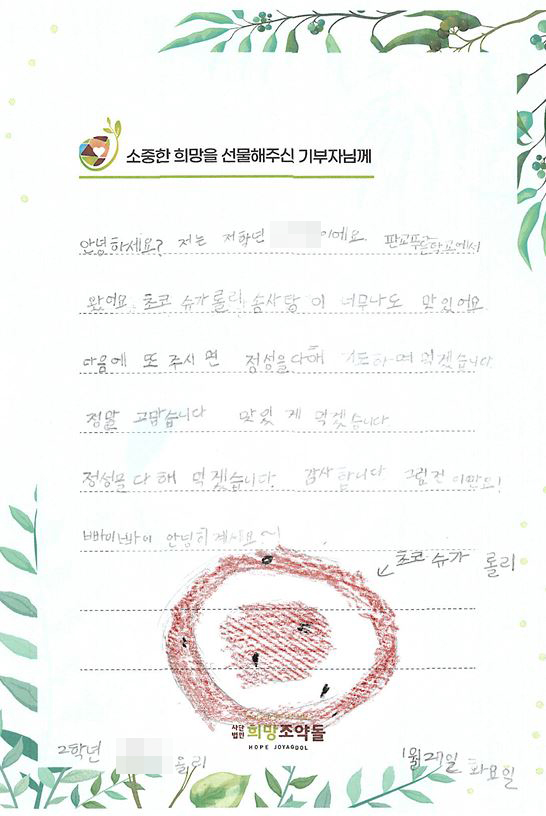 소중한 희망을 선물해주신 기부자님께
안녕하세요? 저는 저학년 이에요. 판교푸른학교에서
왔어요. 초코 슈가롤리, 솜사탕 이 너무나도 맛있어요
다음에 또 주시면 정성을다해 먹겠습니다
정말 고맙습니다 맛있게 먹겠습니다
정성을 다해 먹겠습니다. 감사합니다 그럼전 이만요!
빠이빠이 안녕히계세요~
초코 슈가 롤리
사단법인 희망조약돌
HOPE JOYAGDOL
2학년 올리
1월 29일 화요일